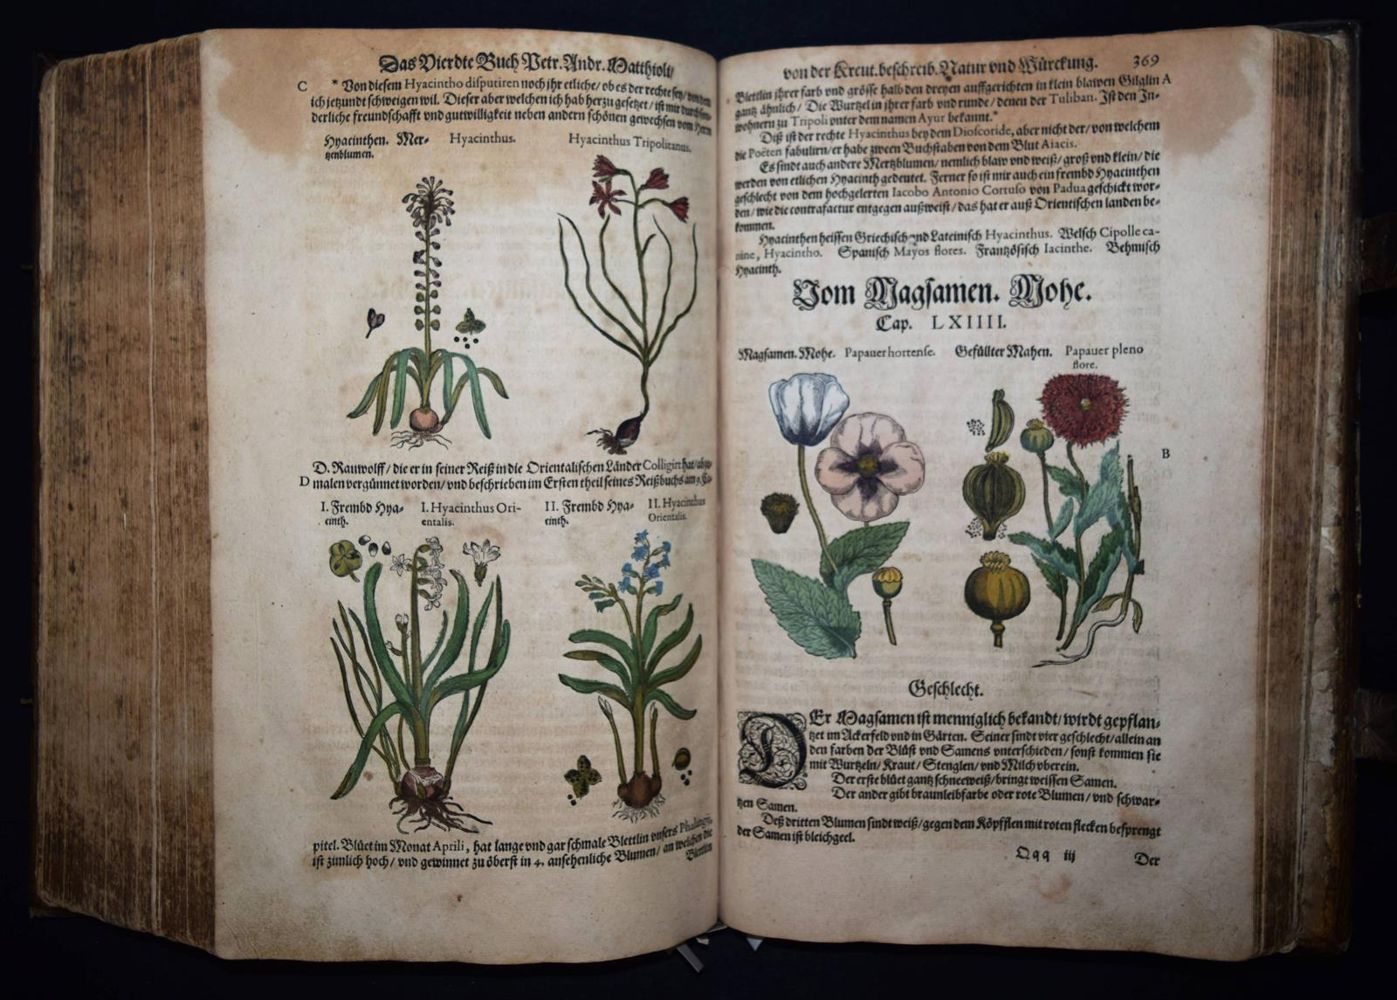 Das Vierdte Buch Petr. Andr. Matthioli/
C
* Von diesem Hyacintho disputiren noch ihr etliche/ ob es der rechte sey/
ich jetzundt schweigen wil. Dieser aber welchen ich hab herzu gesetzt/ ist mir durch
derliche freundschafft vnd gutwilligkeit neben andern schönen gewechsen vom Herrn
Hyacinthen. Mer-
tzenblumen.
Hyacinthus.
Hyacinthus Tripolitanus.
D. Rauwolff/ die er in seiner Reiß in die Orientalischen Länder Colligirt hat/
D malen vergünnet worden/ vnd beschrieben im Ersten theil seines Reißbuchs am 9. Ca-
I. Frembd Hya-
cinth.
I. Hyacinthus Ori-
entalis.
II. Frembd Hya-
cinth.
II. Hyacinthus
Orientalis.
pitel. Blüet im Monat Aprili, hat lange vnd gar schmale Blettlin vnsers Phalangij,
ist zimlich hoch/ vnd gewinnet zu öberst in 4. ansehenliche Blumen/ an welchen die
Blettlin
von der Kreut. beschreib. Natur vnd Würckung.
369
Blettlin ihrer farb vnd grösse halb den dreyen auffgerichten in klein blawen Gilglin A
gantz ähnlich/ Die Wurtzel in ihrer farb vnd runde/ denen der Tuliban. Ist den In-
wohnern zu Tripoli vnter dem namen Ayur bekannt.*
Diß ist der rechte Hyacinthus bey dem Dioscoride, aber nicht der/ von welchem
die Poëten fabulirn/ er habe zween Buchstaben von dem Blut Aiacis.
Es sindt auch andere Mertzblumen/ nemlich blaw vnd weiß/ groß vnd klein/ die
werden von etlichen Hyacinth gedeutet. Ferner so ist mir auch ein frembd Hyacinthen
geschlecht von dem hochgelerten Iacobo Antonio Cortuso von Padua geschickt wor-
den/ wie die contrafactur entgegen außweist/ das hat er auß Orientischen landen be-
kommen.
Hyacinthen heissen Griechisch vnd Lateinisch Hyacinthus. Welsch Cipolle ca-
nine, Hyacintho. Spanisch Mayos flores. Frantzösisch Iacinthe. Behmisch
Hyacinth.
Vom Magsamen. Mohe.
Cap. LXIIII.
Magsamen. Mohe.
Papauer hortense.
Gefüllter Mahen.
Papauer pleno
flore.
B
Geschlecht.
DEr Magsamen ist menniglich bekandt/ wirdt gepflan-
tzet im Ackerfeld vnd in Gärten. Seiner sindt vier geschlecht/ allein an
den farben der Blüst vnd Samens vnterschieden/ sonst kommen sie
mit Wurtzeln/ Kraut/ Stenglen/ vnd Milch vberein.
Der erste blüet gantz schneeweiß/ bringt weissen Samen.
Der ander gibt braunleibfarbe oder rote Blumen/ vnd schwar-
tzen Samen.
Deß dritten Blumen sindt weiß/ gegen dem Köpfflen mit roten flecken besprengt
der Samen ist bleichgeel.
Qqq iij
Der